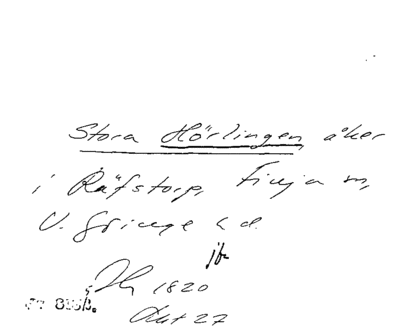 Stora Hörlingen, åker
i Räfstorp, Finja sn,
V. Göinge hd.
jbr
1820
Akt 27